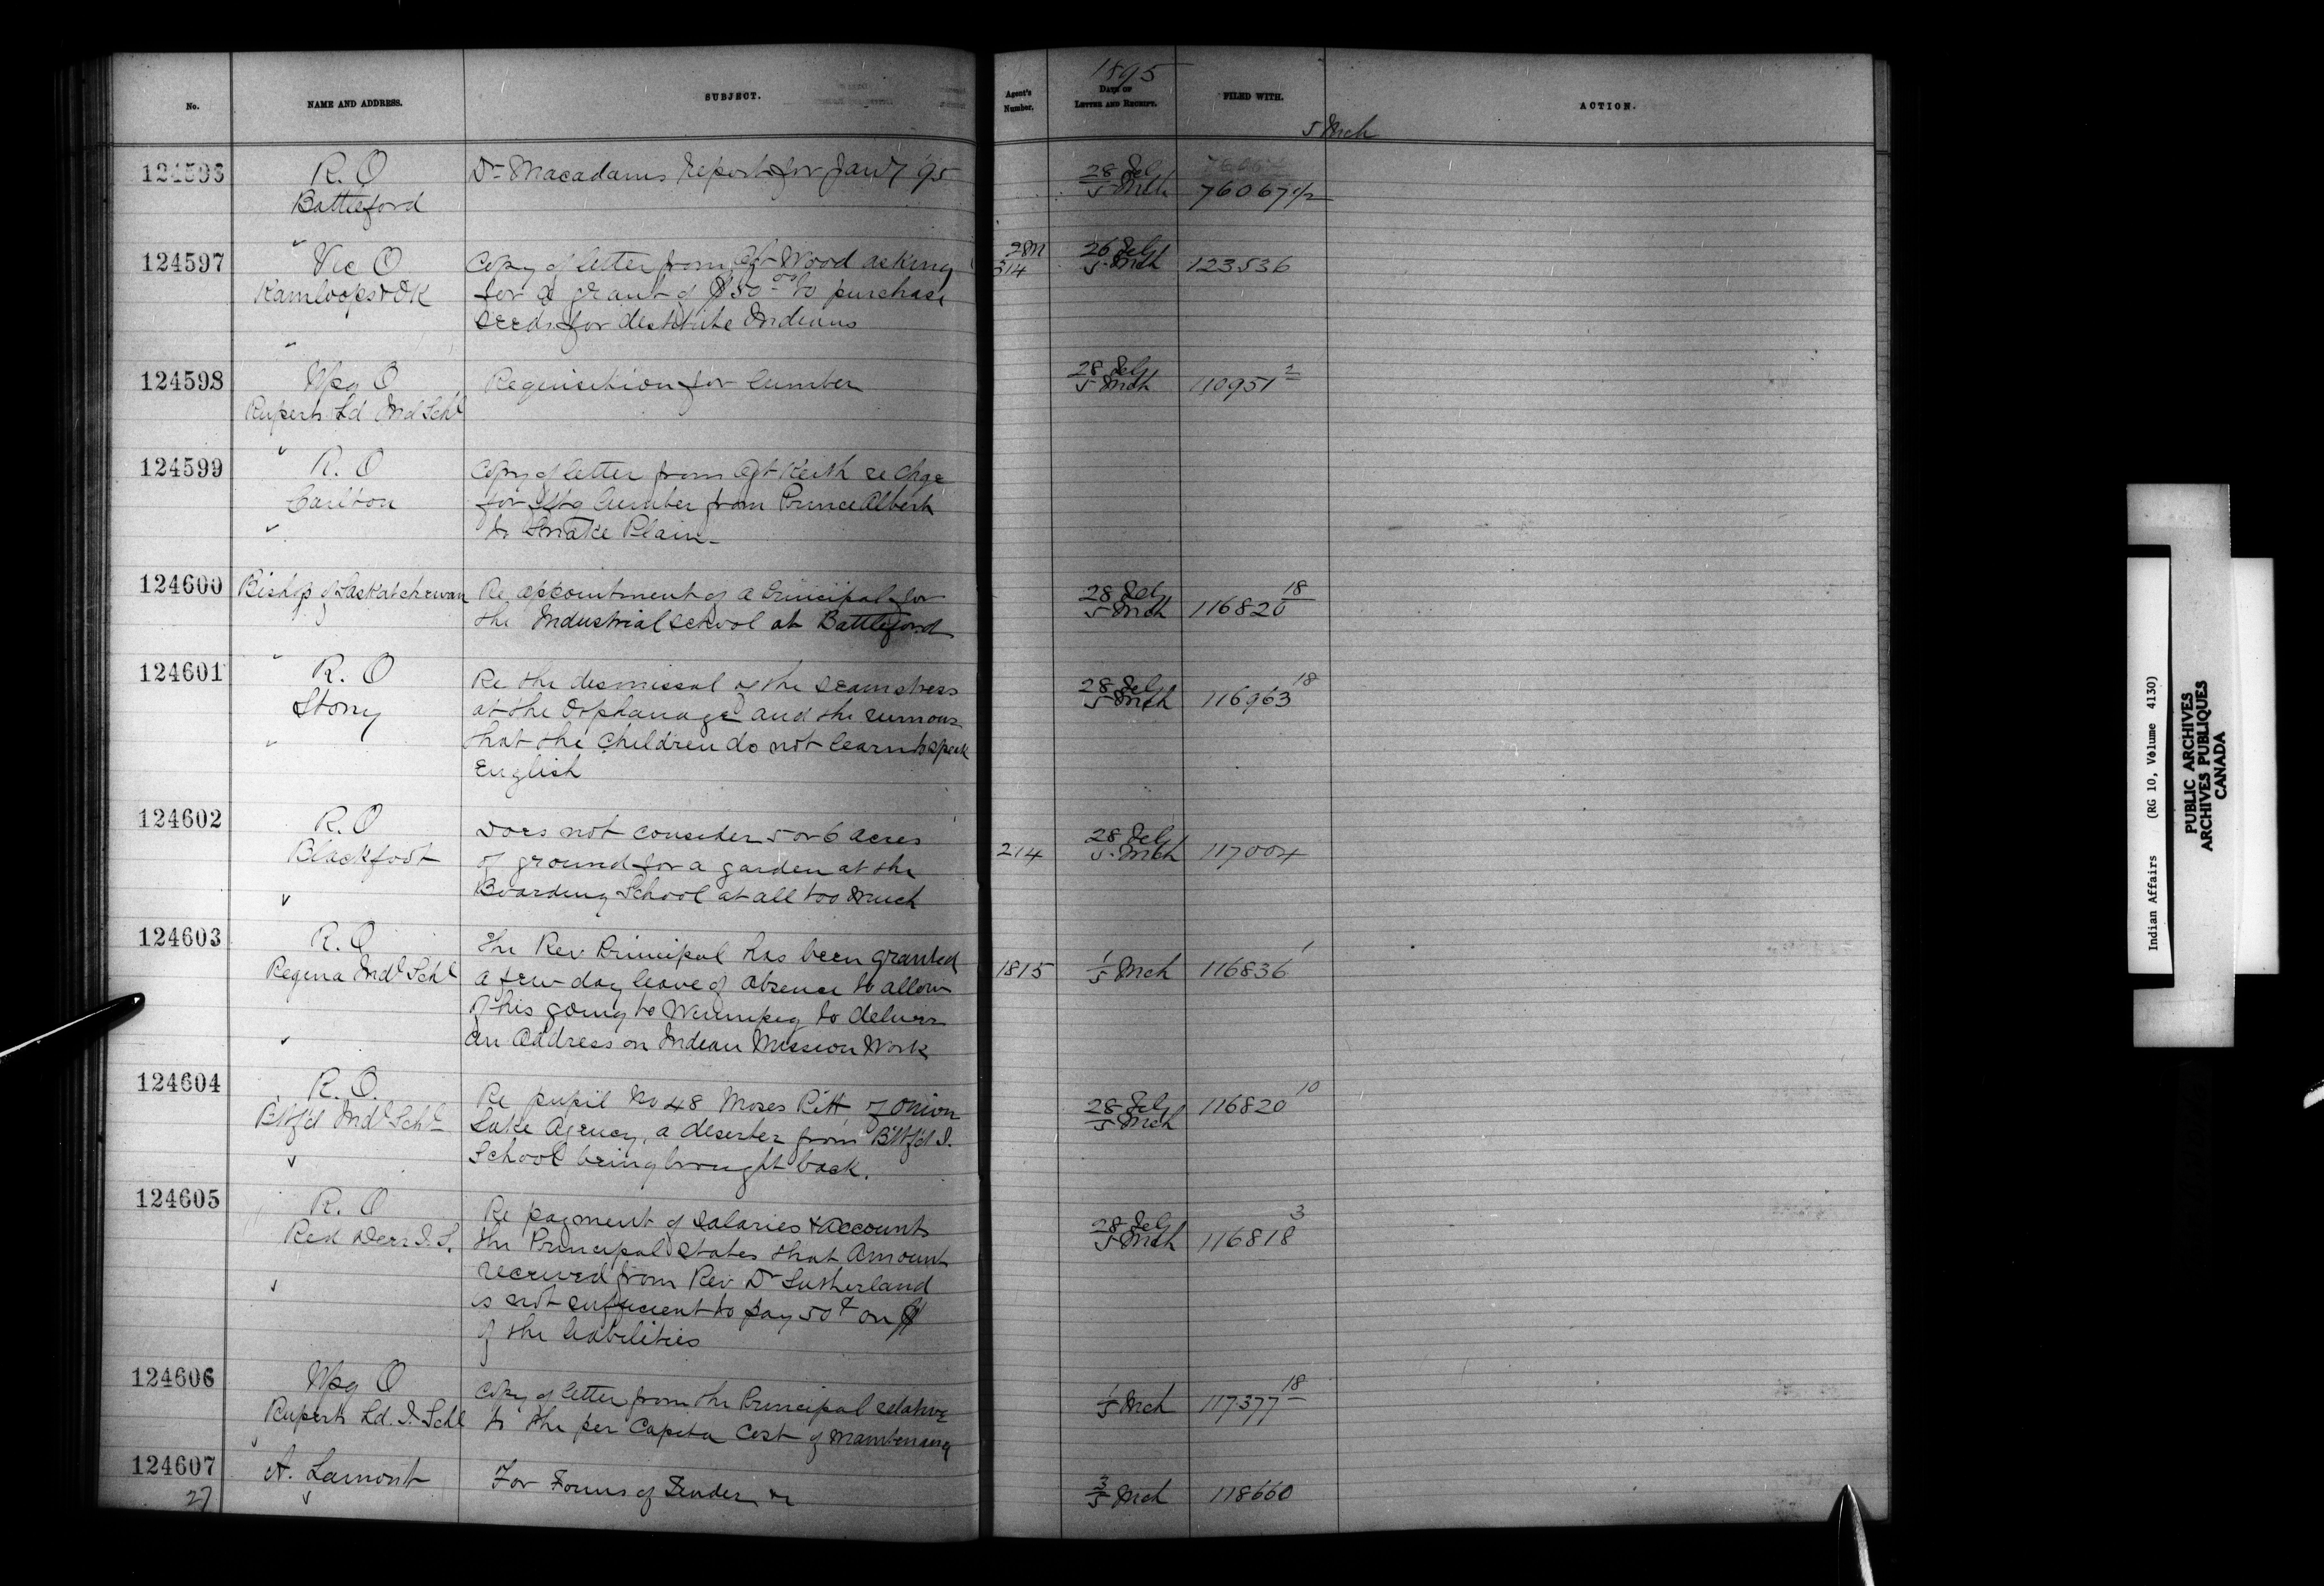 No.
NAME AND ADDRESS.
SUBJECT.
Agent's Number.
1895
DATE OF
LETTER AND RECEIPT.
FILED WITH.
ACTION.
5 Mch
124596
R. O
Battleford
Dr Macadams Report for Jany '95
28 Feby
5 Mch
76067 1/2
124597
Vic O
Kamloops & OK
Copy of letter from Agt Wood asking
for a grant of $50 00 to purchase
seeds for destitute Indians
314
26 Feby
5 Mch
123536
124598
Wpg O
Ruperts Ld Ind Schl
Requisition for lumber
28 Feby
5 Mch
110951 2
124599
R. O
Carlton
Copy of letter from Agt Keith re Chge
for lumber from Prince Albert
to Snake Plain
124600
Bishop of Saskatchewan
Re appointment of a Principal for
the Industrial School at Battleford
28 Feby
5 Mch
116820 18
124601
R. O
Stony
Re the dismissal of the seamstress
at the Orphanage and the rumour
that the Children do not learn to speak
English
28 Feby
5 Mch
116963 18
124602
R. O
Blackfoot
Does not consider 5 or 6 acres
of ground for a garden at the
Boarding School at all too much
214
28 Feby
5 Mch
117004
124603
R. O
Regina Indl Schl
The Rev Principal has been granted
a few day leave of absence to allow
of his going to Winnipeg to deliver
an Address on Indian Mission Work
1815
1
5 Mch
116836 1
124604
R. O.
Btlfd Indl Schl
Re pupil No 48 Moses Pitt of Onion
Lake Agency, a deserter from Btlfd I.
School being brought back.
28 Feby
5 Mch
116820 10
124605
R. O
Red Deer I. S.
Re payment of salaries & accounts
the Principal states that amount
received from Rev Dr Sutherland
is not sufficient to pay 50¢ on $
of the liabilities
28 Feby
5 Mch
116818 3
124606
Wpg O
Ruperts Ld. I. Schl
Copy of letter from the Principal relative
to the per Capita Cost of maintenance
1
5 Mch
117377 18
124607
27
A. Lamont
For Forms of Tender &c
3
5 Mch
118660
Indian Affairs (RG 10, Volume 4130)
PUBLIC ARCHIVES
ARCHIVES PUBLIQUES
CANADA